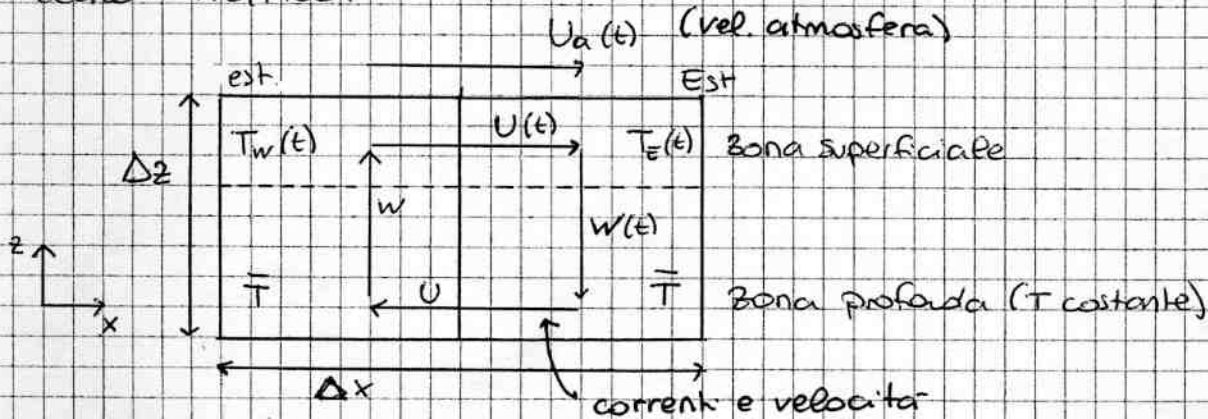 Ua(t) (vel. atmosfera)
est. Est
Tw(t) U(t) TE(t) Zona superficiale
Δz
W W(t)
z
T̄ U T̄ Zona profonda (T costante)
x
Δx
correnti e velocità